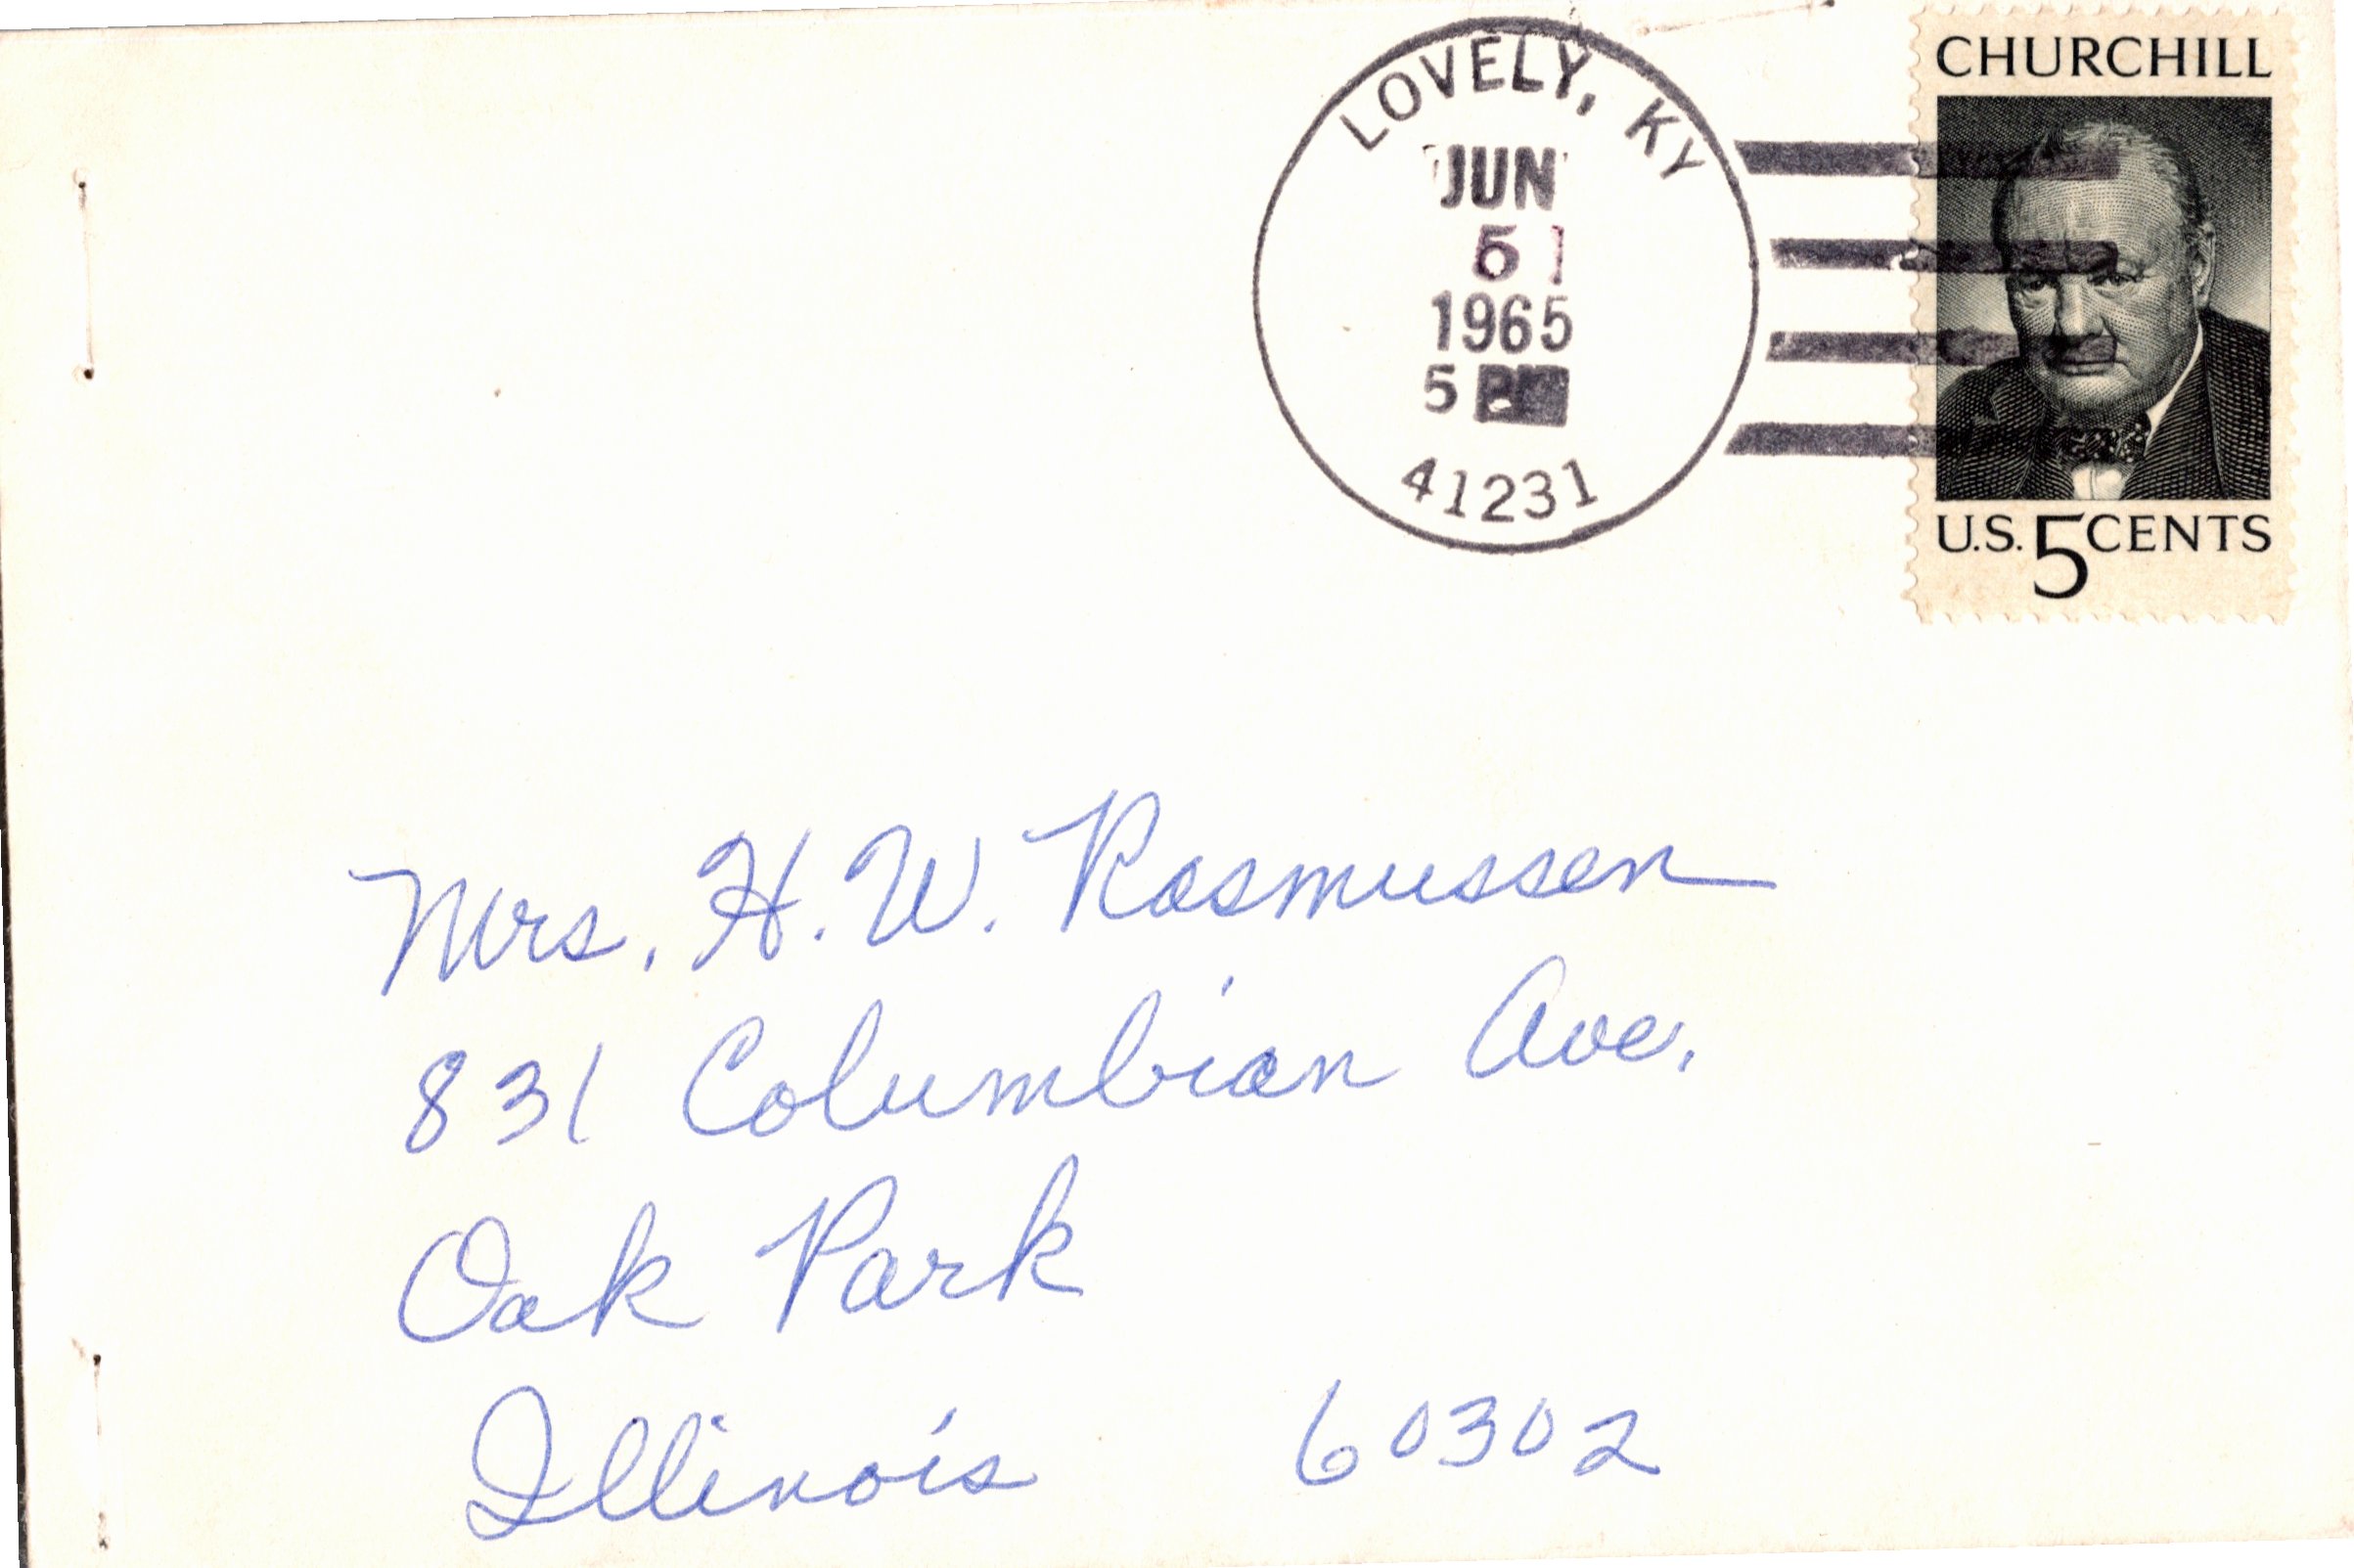 LOVELY, KY
JUN
1965
5 PM
41231
CHURCHILL
U.S. 5 CENTS
Mrs. H. W. Rasmussen
831 Columbian Ave.
Oak Park
Illinois 60302